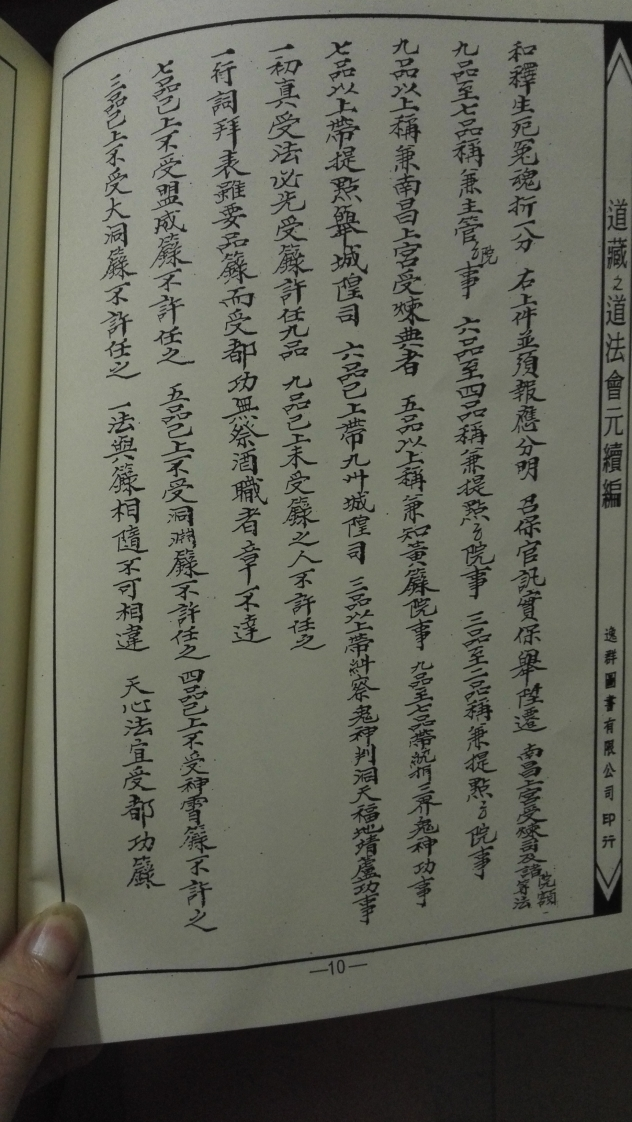 道藏之道法會元續編
逸群圖書有限公司 印行
和釋生死冤魂折一分 右上件並須報應分明 召保官訊實保舉陞遷 南昌上宮受煉司及諸院額一等法
九品至七品稱兼主管院事 六品至四品稱兼提點院事 三品至二品稱兼提點院事
九品以上稱兼南昌上宮受煉典者 五品以上稱兼知黃籙院事 九品至七品帶統捐三界鬼神功事
七品以上帶提點舉城隍司 六品已上帶九州城隍司 三品以上帶糾察鬼神判洞天福地靖廬功事
一初真受法必先受籙許任九品 九品已上未受籙之人不許任之
一行詞拜表雖要品籙而受都功無祭酒職者章不達
七品已上不受盟威籙不許任之 五品已上不受洞淵籙不許任之 四品已上不受神霄籙不許之
三品已上不受大洞籙不許任之 一法與籙相隨不可相違 天心法宜受都功籙
—10—